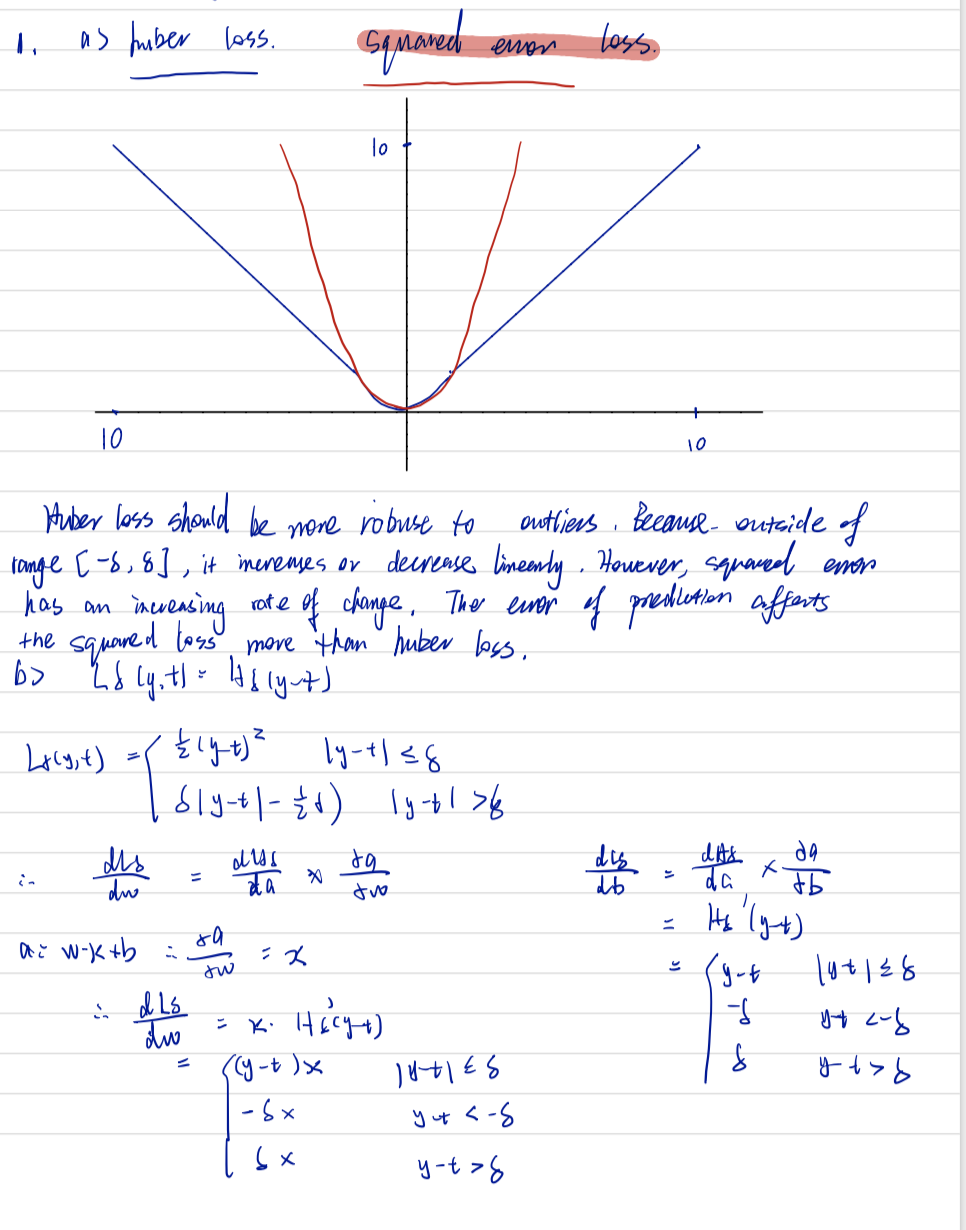 1. a> huber loss. squared error loss.
10
10 10
Huber loss should be more robuse to outliers. Because outside of
range [-δ, δ], it increases or decrease linearly. However, squared error
has an increasing rate of change. The error of prediction affects
the squared loss more than huber loss.
b> Lδ(y,t) = Hδ(y-t)
Lδ(y,t) = { ½(y-t)² |y-t| ≤ δ
δ|y-t| - ½δ) |y-t| > δ
∴ dLδ/dw = dHδ/da × ∂a/∂w
a = w·x+b ∴ ∂a/∂w = x
∴ dLδ/dw = x · Hδ'(y-t)
= { (y-t)x |y-t| ≤ δ
-δx y-t < -δ
δx y-t > δ
dLδ/db = dHδ/da × ∂a/∂b
= Hδ'(y-t)
= { y-t |y-t| ≤ δ
-δ y-t < -δ
δ y-t > δ